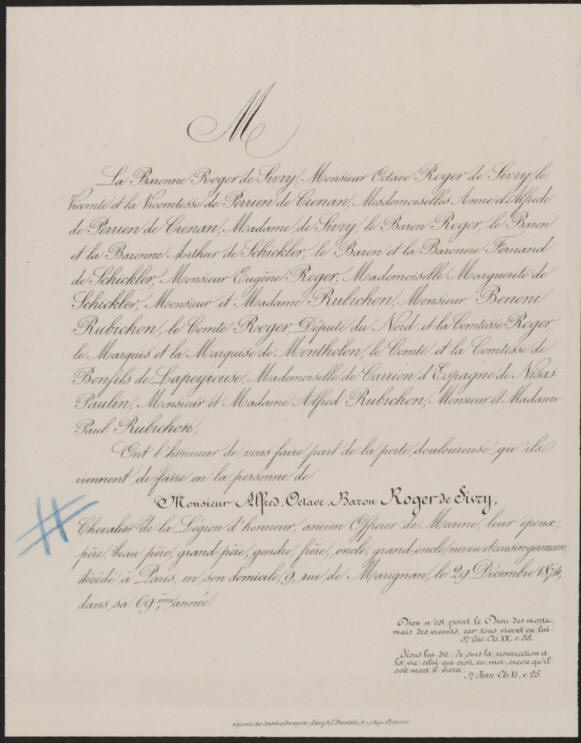 M
La Baronne Roger de Sivry, Monsieur Octave Roger de Sivry, le
Vicomte et la Vicomtesse de Perrien de Crenan, Mesdemoiselles Anne et Alfrede
de Perrien de Crenan, Madame de Sivry, le Baron Roger, le Baron
et la Baronne Arthur de Schickler, le Baron et la Baronne Fernand
de Schickler, Monsieur Eugène Roger, Mademoiselle Marguerite de
Schickler, Monsieur et Madame Rubichon, Monsieur Benoni
Rubichon, le Comte Roger, Député du Nord et la Comtesse Roger,
le Marquis et la Marquise de Montholon, le Comte et la Comtesse de
Bonfils de Lapeyrouse, Mademoiselle de Carrion d'Espagne de Nisas
Paulin, Monsieur et Madame Alfred Rubichon, Monsieur et Madame
Paul Rubichon,
Ont l'honneur de vous faire part de la perte douloureuse qu'ils
viennent de faire en la personne de
Monsieur Alfred, Octave, Baron Roger de Sivry,
Chevalier de la Légion d'honneur, ancien Officier de Marine, leur époux,
père, beau père, grand père, gendre, frère, oncle, grand oncle, neveu et cousin germain,
décédé à Paris, en son domicile, 9, rue de Marignan, le 29 Décembre 1874,
dans sa 69ème année.
Dieu n'est point le Dieu des morts,
mais des vivants, car tous vivent en lui.
St Luc. Ch. XX, v. 38.
Jésus lui dit: Je suis la résurrection et
la vie: celui qui croit en moi, encore qu'il
soit mort il vivra.
St Jean. Ch. XI, v. 25.